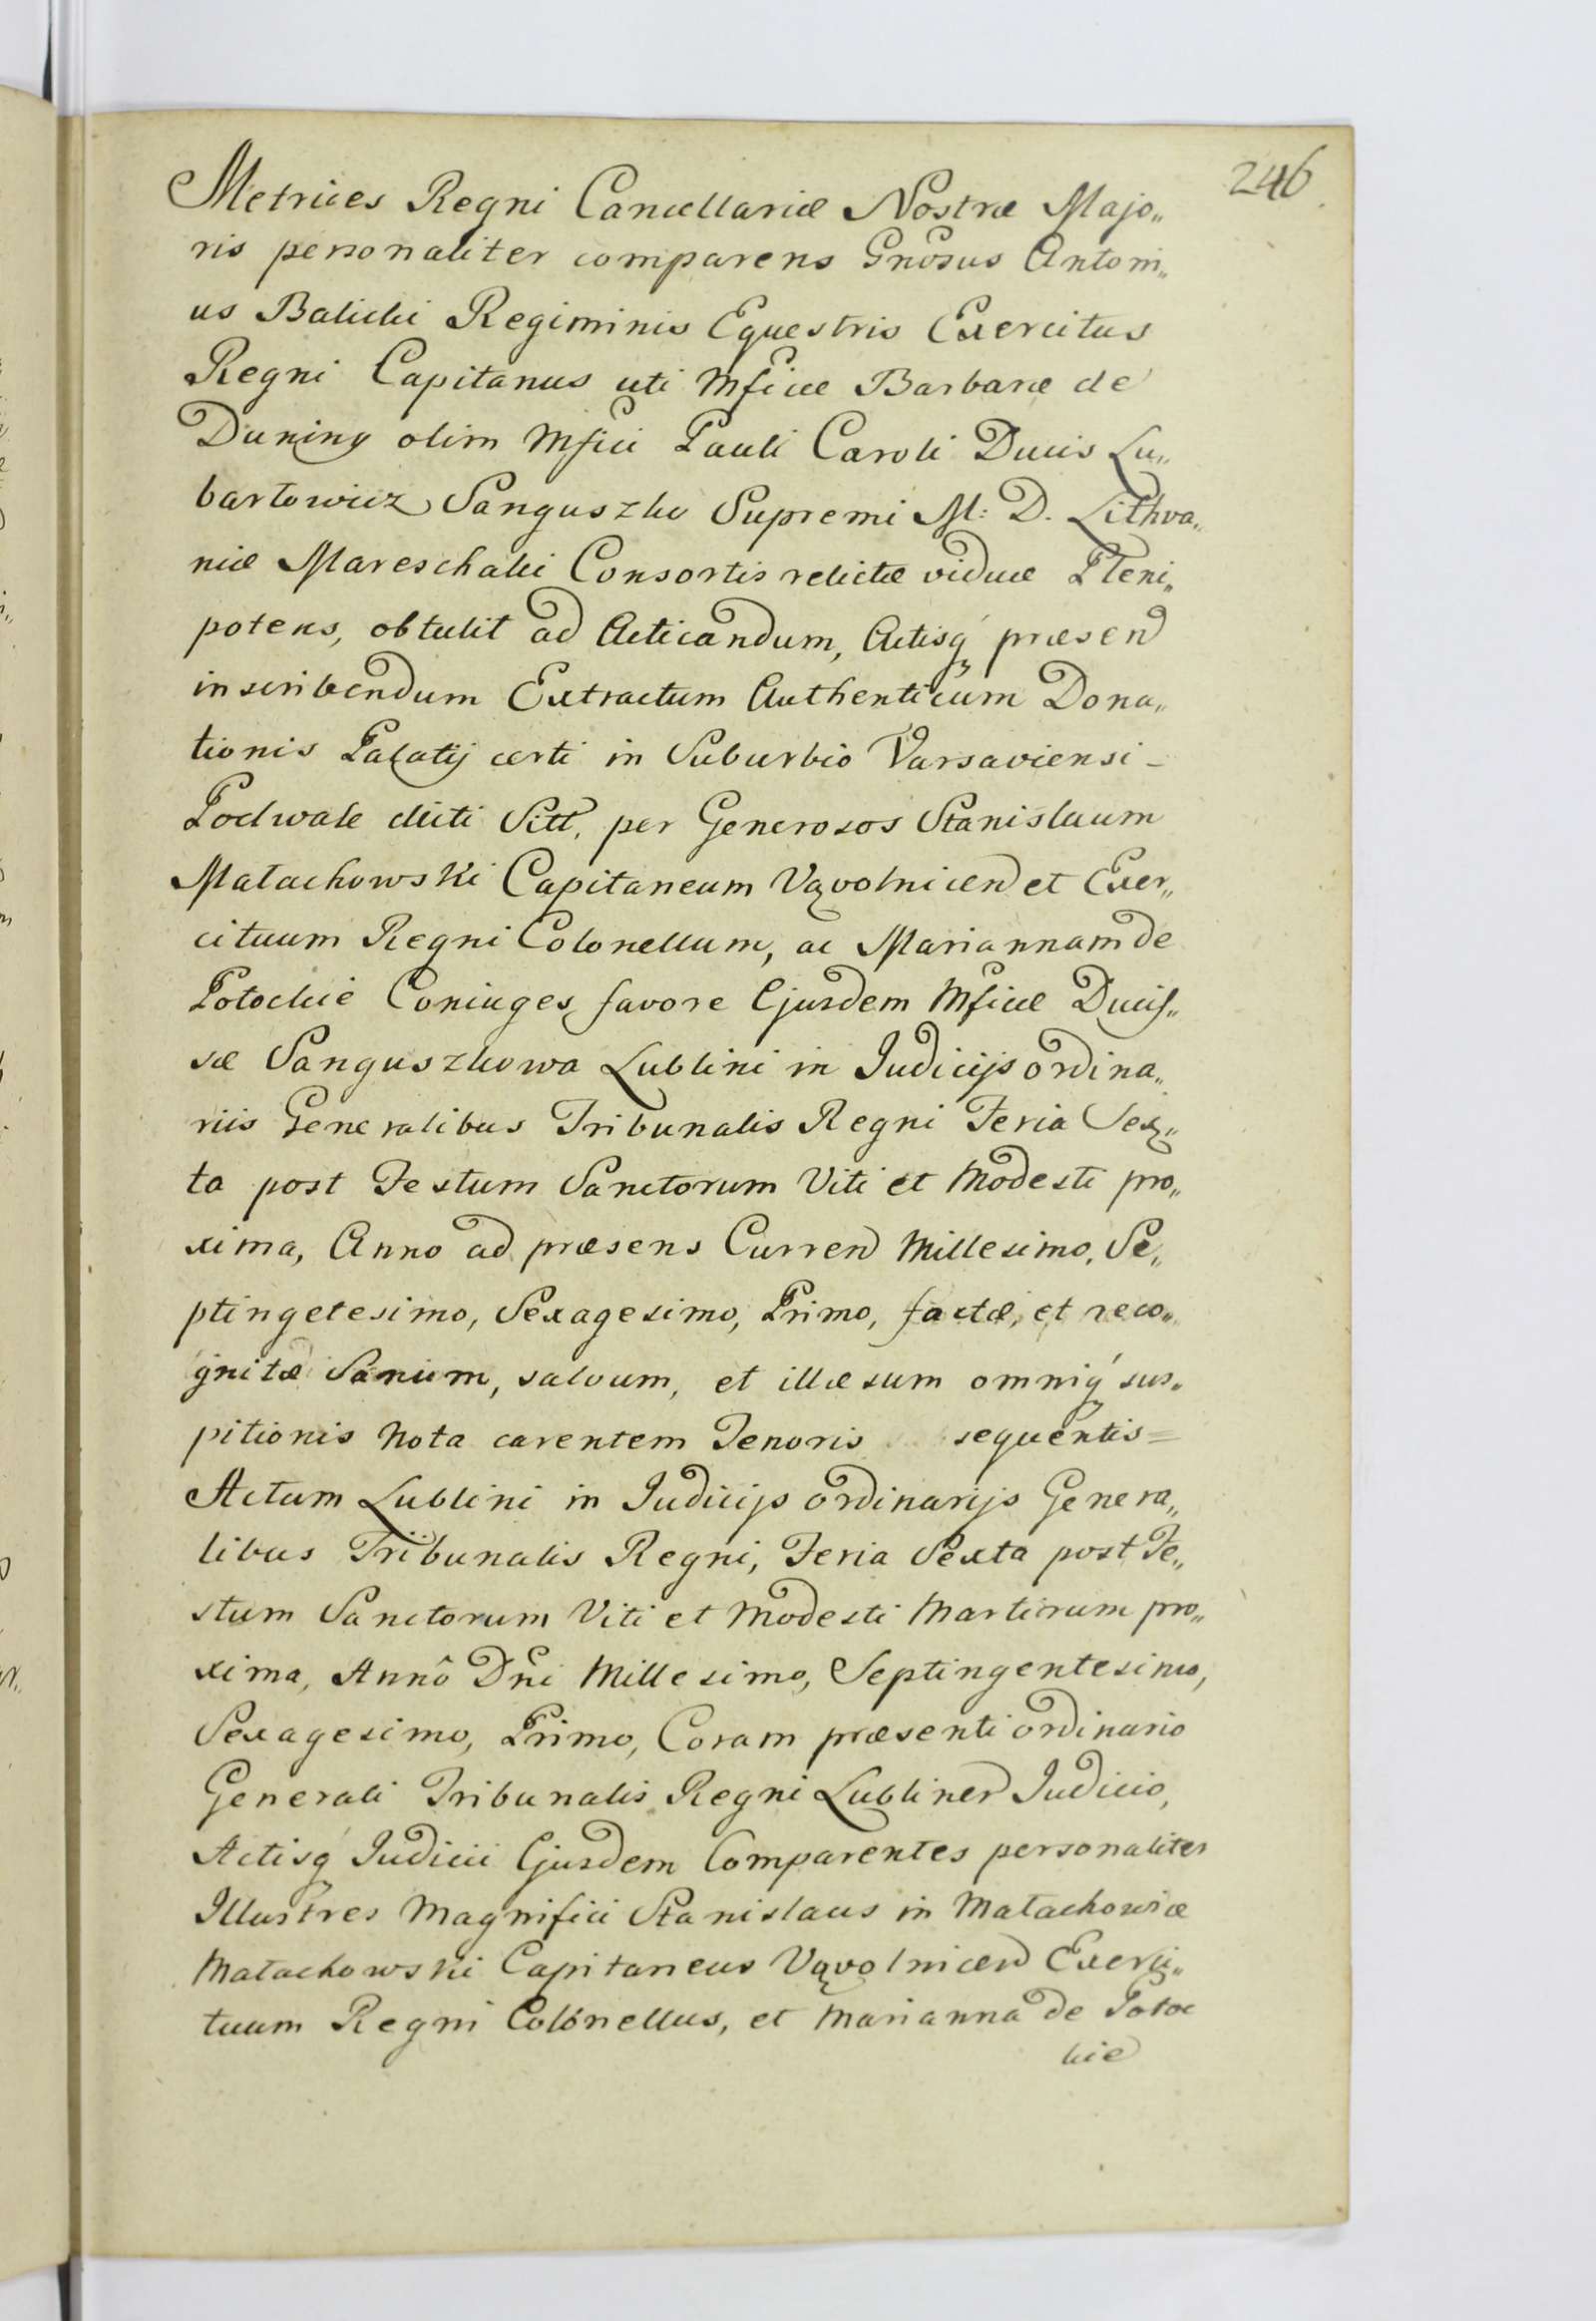 246
Metrices Regni Cancellariæ Nostræ Majo„
ris personaliter comparens Gnosus Antoni„
us Balicki Regiminis Equestris Exercitus
Regni Capitanus uti Mficæ Barbaræ de
Duniny olim Mfici Pauli Caroli Ducis Lu„
bartowicz Sanguszko Supremi M: D. Lithva„
niæ Mareschalci Consortis relictæ viduæ Pleni„
potens, obtulit ad Acticandum, Actisq præsend
inscribendum Extractum Authenticum Dona„
tionis Palatij certi in Suburbio Varsaviensi –
Podwale dicti Sitt, per Generosos Stanislaum
Małachowski Capitaneum Vąvolnicend et Exer„
cituum Regni Colonellum, ac Mariannam de
Potockie Coniuges favore Ejusdem Mficæ Ducis„
sæ Sanguszkowa Lublini in Judicijs ordina„
riis Generalibus Tribunalis Regni Feria Sex„
ta post Festum Sanctorum Viti et Modesti pro„
xima, Anno ad præsens Currend Millesimo, Se„
ptingetesimo, Sexagesimo, Primo, factæ, et reco„
gnitæ Sanum, salvum, et illæsum omniq sus„
pitionis Nota carentem Tenoris sequentis =
Actum Lublini in Judicijs ordinarijs Genera„
libus Tribunalis Regni, Feria Sexta post Fe„
stum Sanctorum Viti et Modesti Martirum pro„
xima, Annô Dni Millesimo, Septingentesimo,
Sexagesimo, Primo, Coram præsenti ordinario
Generali Tribunalis Regni Lublinend Judicio,
Actisq Judicii Ejusdem Comparentes personaliter
Illustres Magnifici Stanislaus in Małachowice
Małachowski Capitaneus Vąvolnicend Exerci„
tuum Regni Colonellus, et Marianna de Potoc
kie